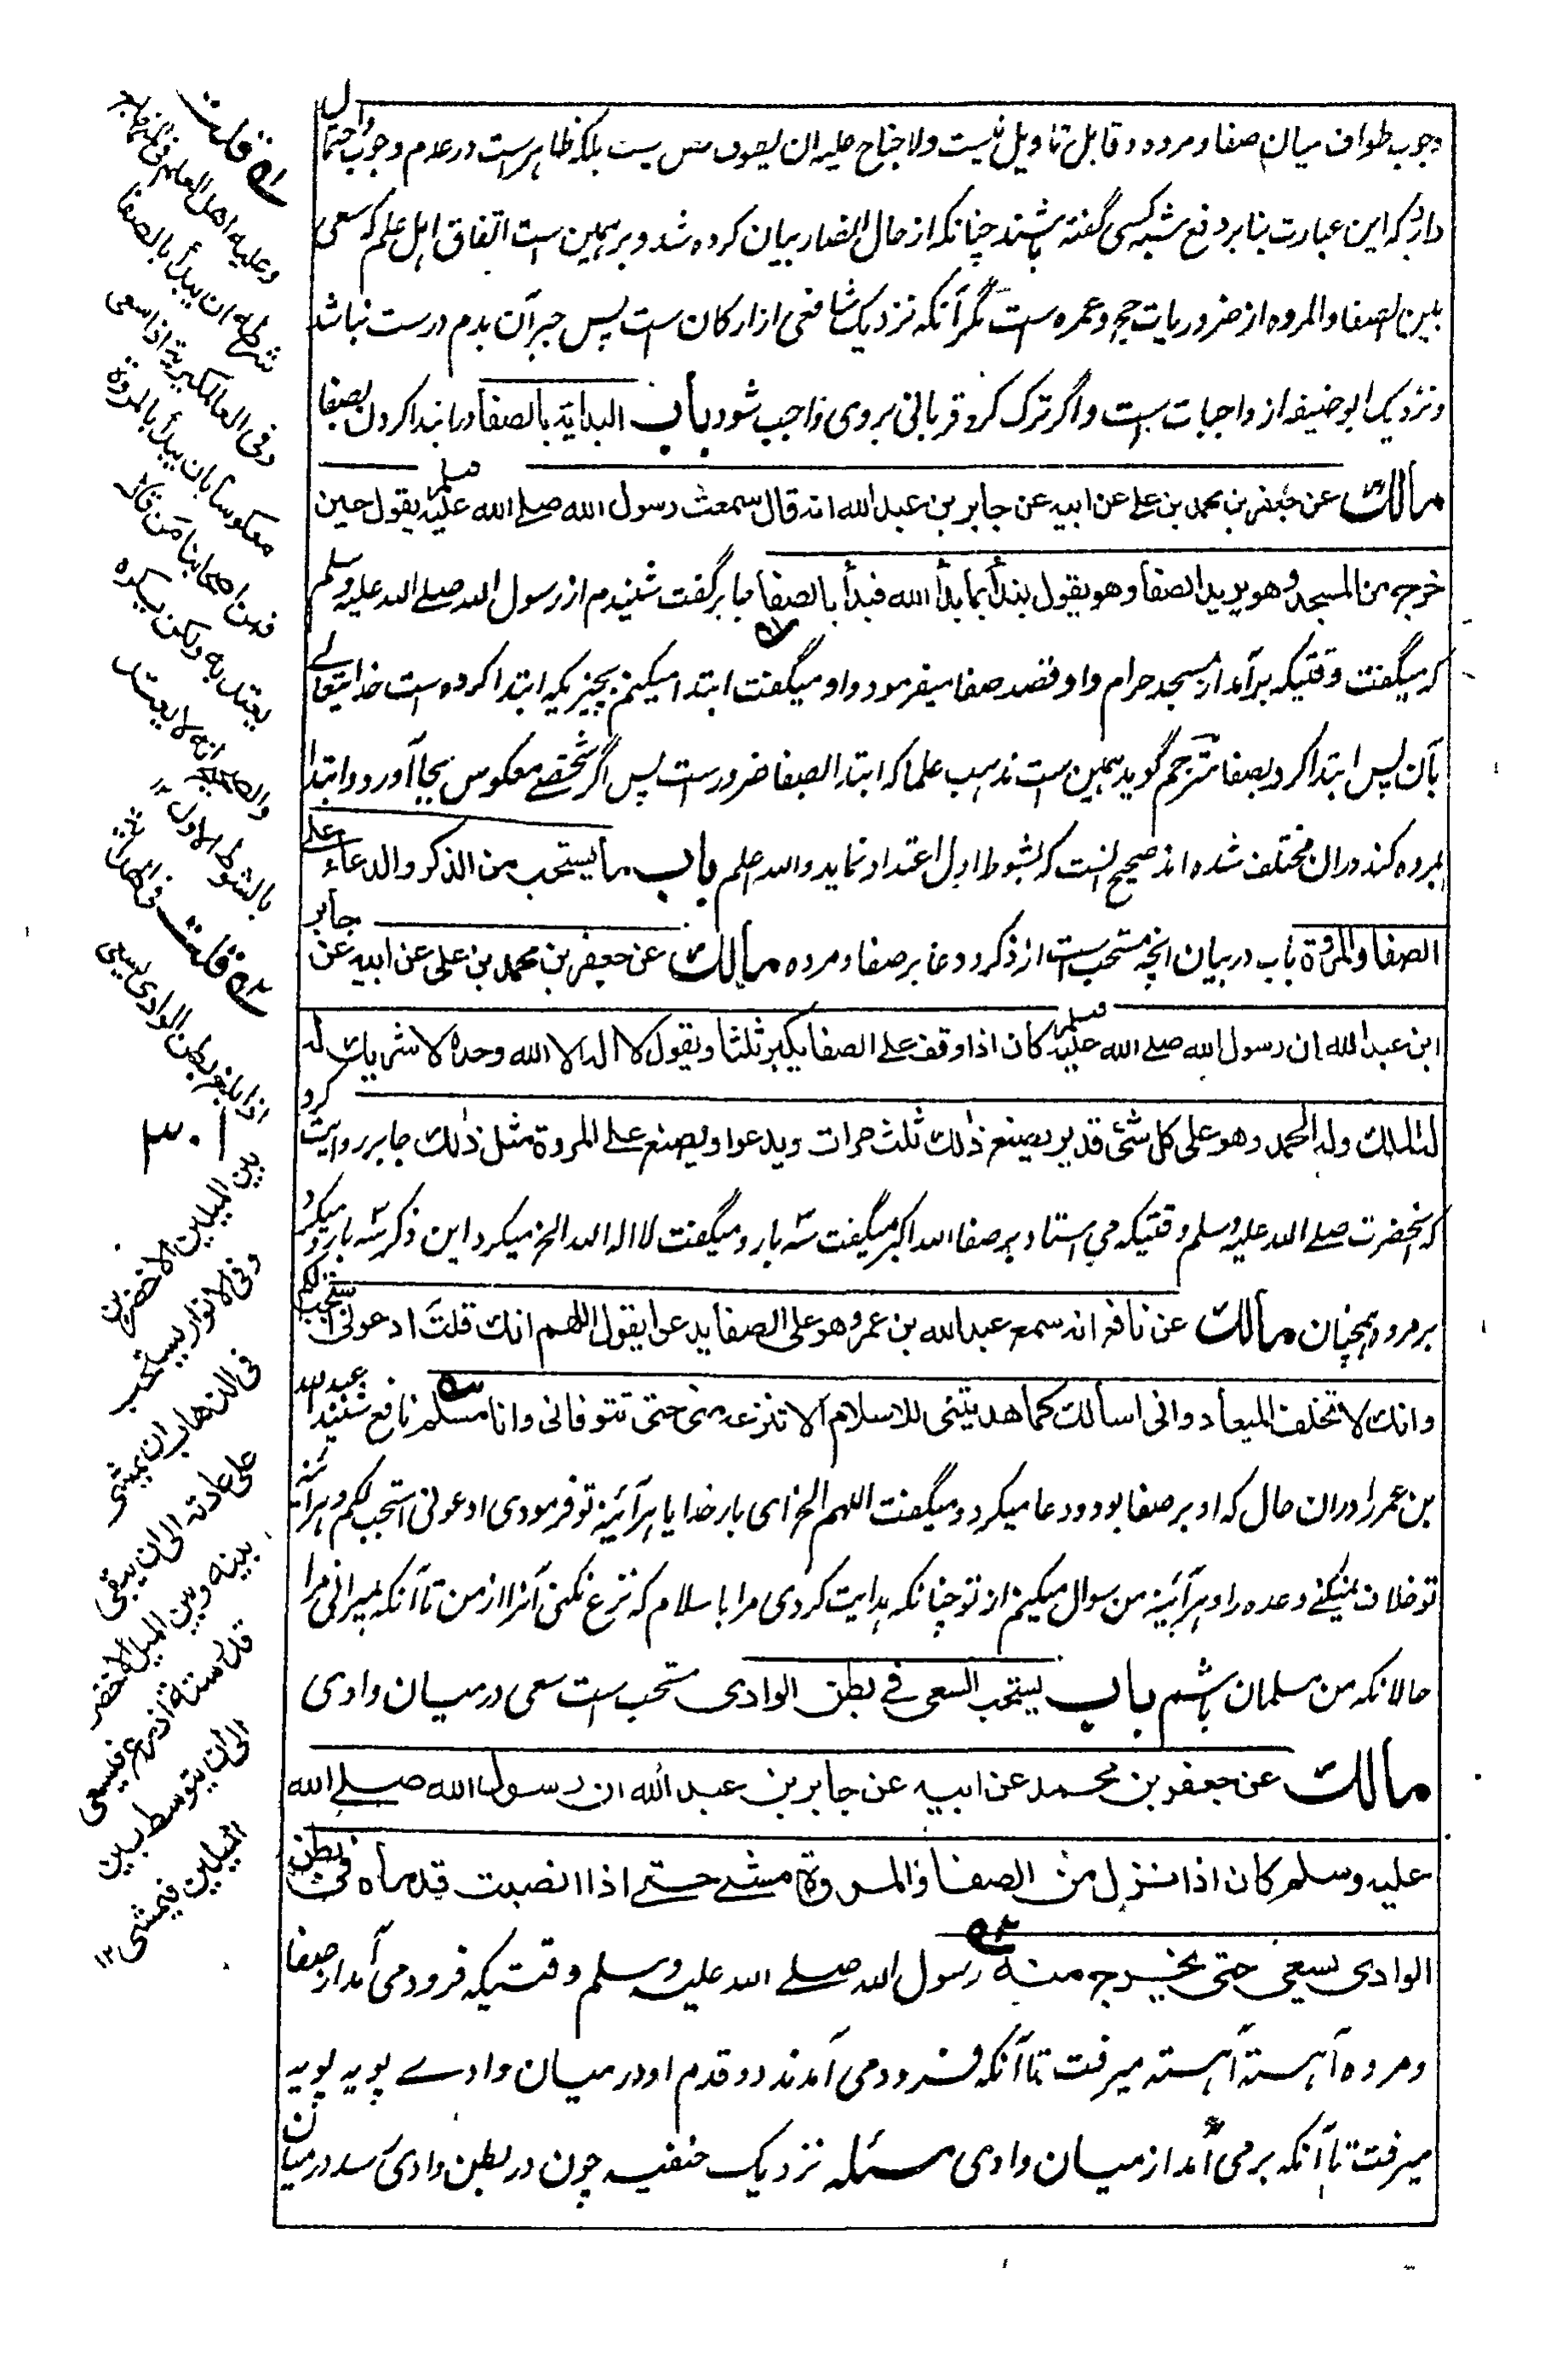 وجوب طواف میان صفا و مروه و قابل تاویل نیست ولا جناح علیه ان یطوف نص نیست بلکه ظاہر ست در عدم وجوب و احتمال
دارد که این عبارت بنا بر دفع شبه کسی گفته باشند چنانکه از حال انصار بیان کرده شد و بر ہمین ست اتفاق اہل علم که سعی
بین الصفا و المروه از ضروریات حج و عمره ست مگر آنکه نزدیک شافعی از ارکان ست پس جبر آن بدم درست نباشد
و نزدیک ابوحنیفه از واجبات ست و اگر ترک کرد قربانی بر وی واجب شود باب البدایة بالصفا در ابتدا کردن بصفا
مالك عن جعفر بن محمد بن علی عن ابیه عن جابر بن عبد الله انه قال سمعت رسول الله صلے الله علیه وسلم یقول حین
خرج من المسجد وهو یرید الصفا وهو یقول نبدأ بما بدأ الله فبدأ بالصفا جابر گفت شنیدم از رسول الله صلے الله علیه وسلم
که میگفت وقتیکه برآمد از مسجد حرام و او قصد صفا میفرمود و او میگفت ابتدا میکنم بچیزیکه ابتدا کرده ست خدایتعالے
بآن پس ابتدا کرد بصفا مترجم گوید ہمین ست مذہب علما که ابتدا الصفا ضرورست پس اگر شخصے معکوس بجا آورد و ابتدا
بمروه کند دران مختلف شده اند صحیح آنست که بشوط اول اعتداد نماید والله اعلم باب ما یستحب من الذکر والدعاء علے
الصفا والمروة باب در بیان انچه مستحب ست از ذکر و دعا بر صفا و مروه مالك عن جعفر بن محمد بن علی عن ابیه عن جابر
ابن عبد الله ان رسول الله صلے الله علیه وسلم کان اذا وقف علے الصفا یکبر ثلثا ویقول لا اله الا الله وحده لا شریك له
له الملك وله الحمد وهو علی کل شئ قدیر یصنع ذلك ثلث مرات ویدعوا ویصنع علے المروة مثل ذلك جابر روایت کرد
که آنحضرت صلے الله علیه وسلم وقتیکه می استاد بر صفا الله اکبر میگفت سه بار و میگفت لا اله الا الله الخ میکرد این ذکر سه بار و میکرد
بر مروه ہمچنان مالك عن نافع انه سمع عبد الله بن عمر وهو علی الصفا یدعوا یقول اللهم انك قلتَ ادعونی استجب لکم
وانك لا تخلف المیعاد وانی اسألك کما هدیتنی للاسلام الا تنزعه منی حتی تتوفانی وانا مسلم نافع شنید عبد الله
بن عمر را دران حال که او بر صفا بود و دعا میکرد و میگفت اللهم الخ ای بار خدایا ہر آئینه تو فرمودی ادعونی استجب لکم و ہر آئینه
تو خلاف نمیکنے وعده را و ہر آئینه من سوال میکنم از تو چنانکه ہدایت کردی مرا باسلام که نزع نکنی آنرا از من تا آنکه بمیرانی مرا
حالانکه من مسلمان باشم باب یستحب السعی فے بطن الوادی مستحب ست سعی در میان وادی
مالك عن جعفر بن محمد عن ابیه عن جابر بن عبد الله ان رسول الله صلے الله
علیه وسلم کان اذا نزل من الصفا والمروة مشے حتے اذا انصبت قدماه فی بطن
الوادی سعی حتی یخرج منه رسول الله صلے الله علیه وسلم وقتیکه فرود می آمد از صفا
و مروه آہسته آہسته میرفت تا آنکه فرود می آمدند دو قدم او در میان وادے پویه پویه
میرفت تا آنکه بر می آمد از میان وادی مسئله نزدیک حنفیه چون در بطن وادی رسد در میان
ا ه قلت
وعلیه اهل العلم
شرطه ان یبدأ بالصفا
وفی العالمگیریة اذا سعی
معکوسا بان یبدأ بالمروة
فمن اصحابنا من قال
یعتد به ولکن یکره
والصحیح انه لا یعتد
بالشوط الاول ۱۲
۲ ه قلت
اذا بلغ بطن الوادی یسعی
۳۰۱
بین المیلین الاخضرین
وفی الانوار یستحب
فی الذهاب ان یمشی
علی عادته الی ان یبقی
بینه وبین المیل الاخضر
قدر ستة اذرع فیسعی
الی ان یتوسط بین
المیلین فیمشی ۱۲